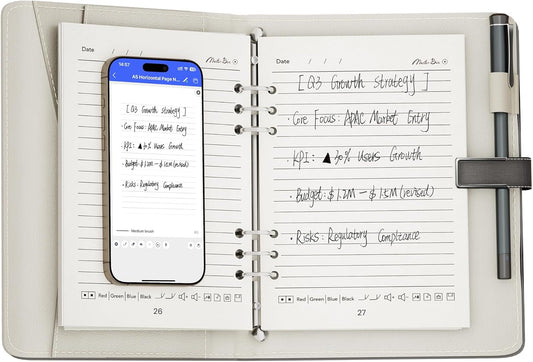 Date / /
14:57
A5 Horizontal Page N...
[Q3 Growth Strategy]
· Core Focus: APAC Market Entry
· KPI: ▲30% Users Growth
· Budget: $1.2M — $1.5M (revised)
· Risks: Regulatory Compliance
Medium brush
Red | Green | Blue | Black
26
Date / /
[Q3 Growth Strategy]
· Core Focus: APAC Market Entry
· KPI: ▲30% Users Growth
· Budget: $1.2M — $1.5M (revised)
· Risks: Regulatory Compliance
Red | Green | Blue | Black
27